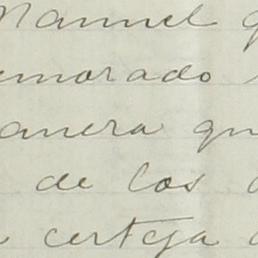 Manuel q
emorado
anera qu
de los
certeja